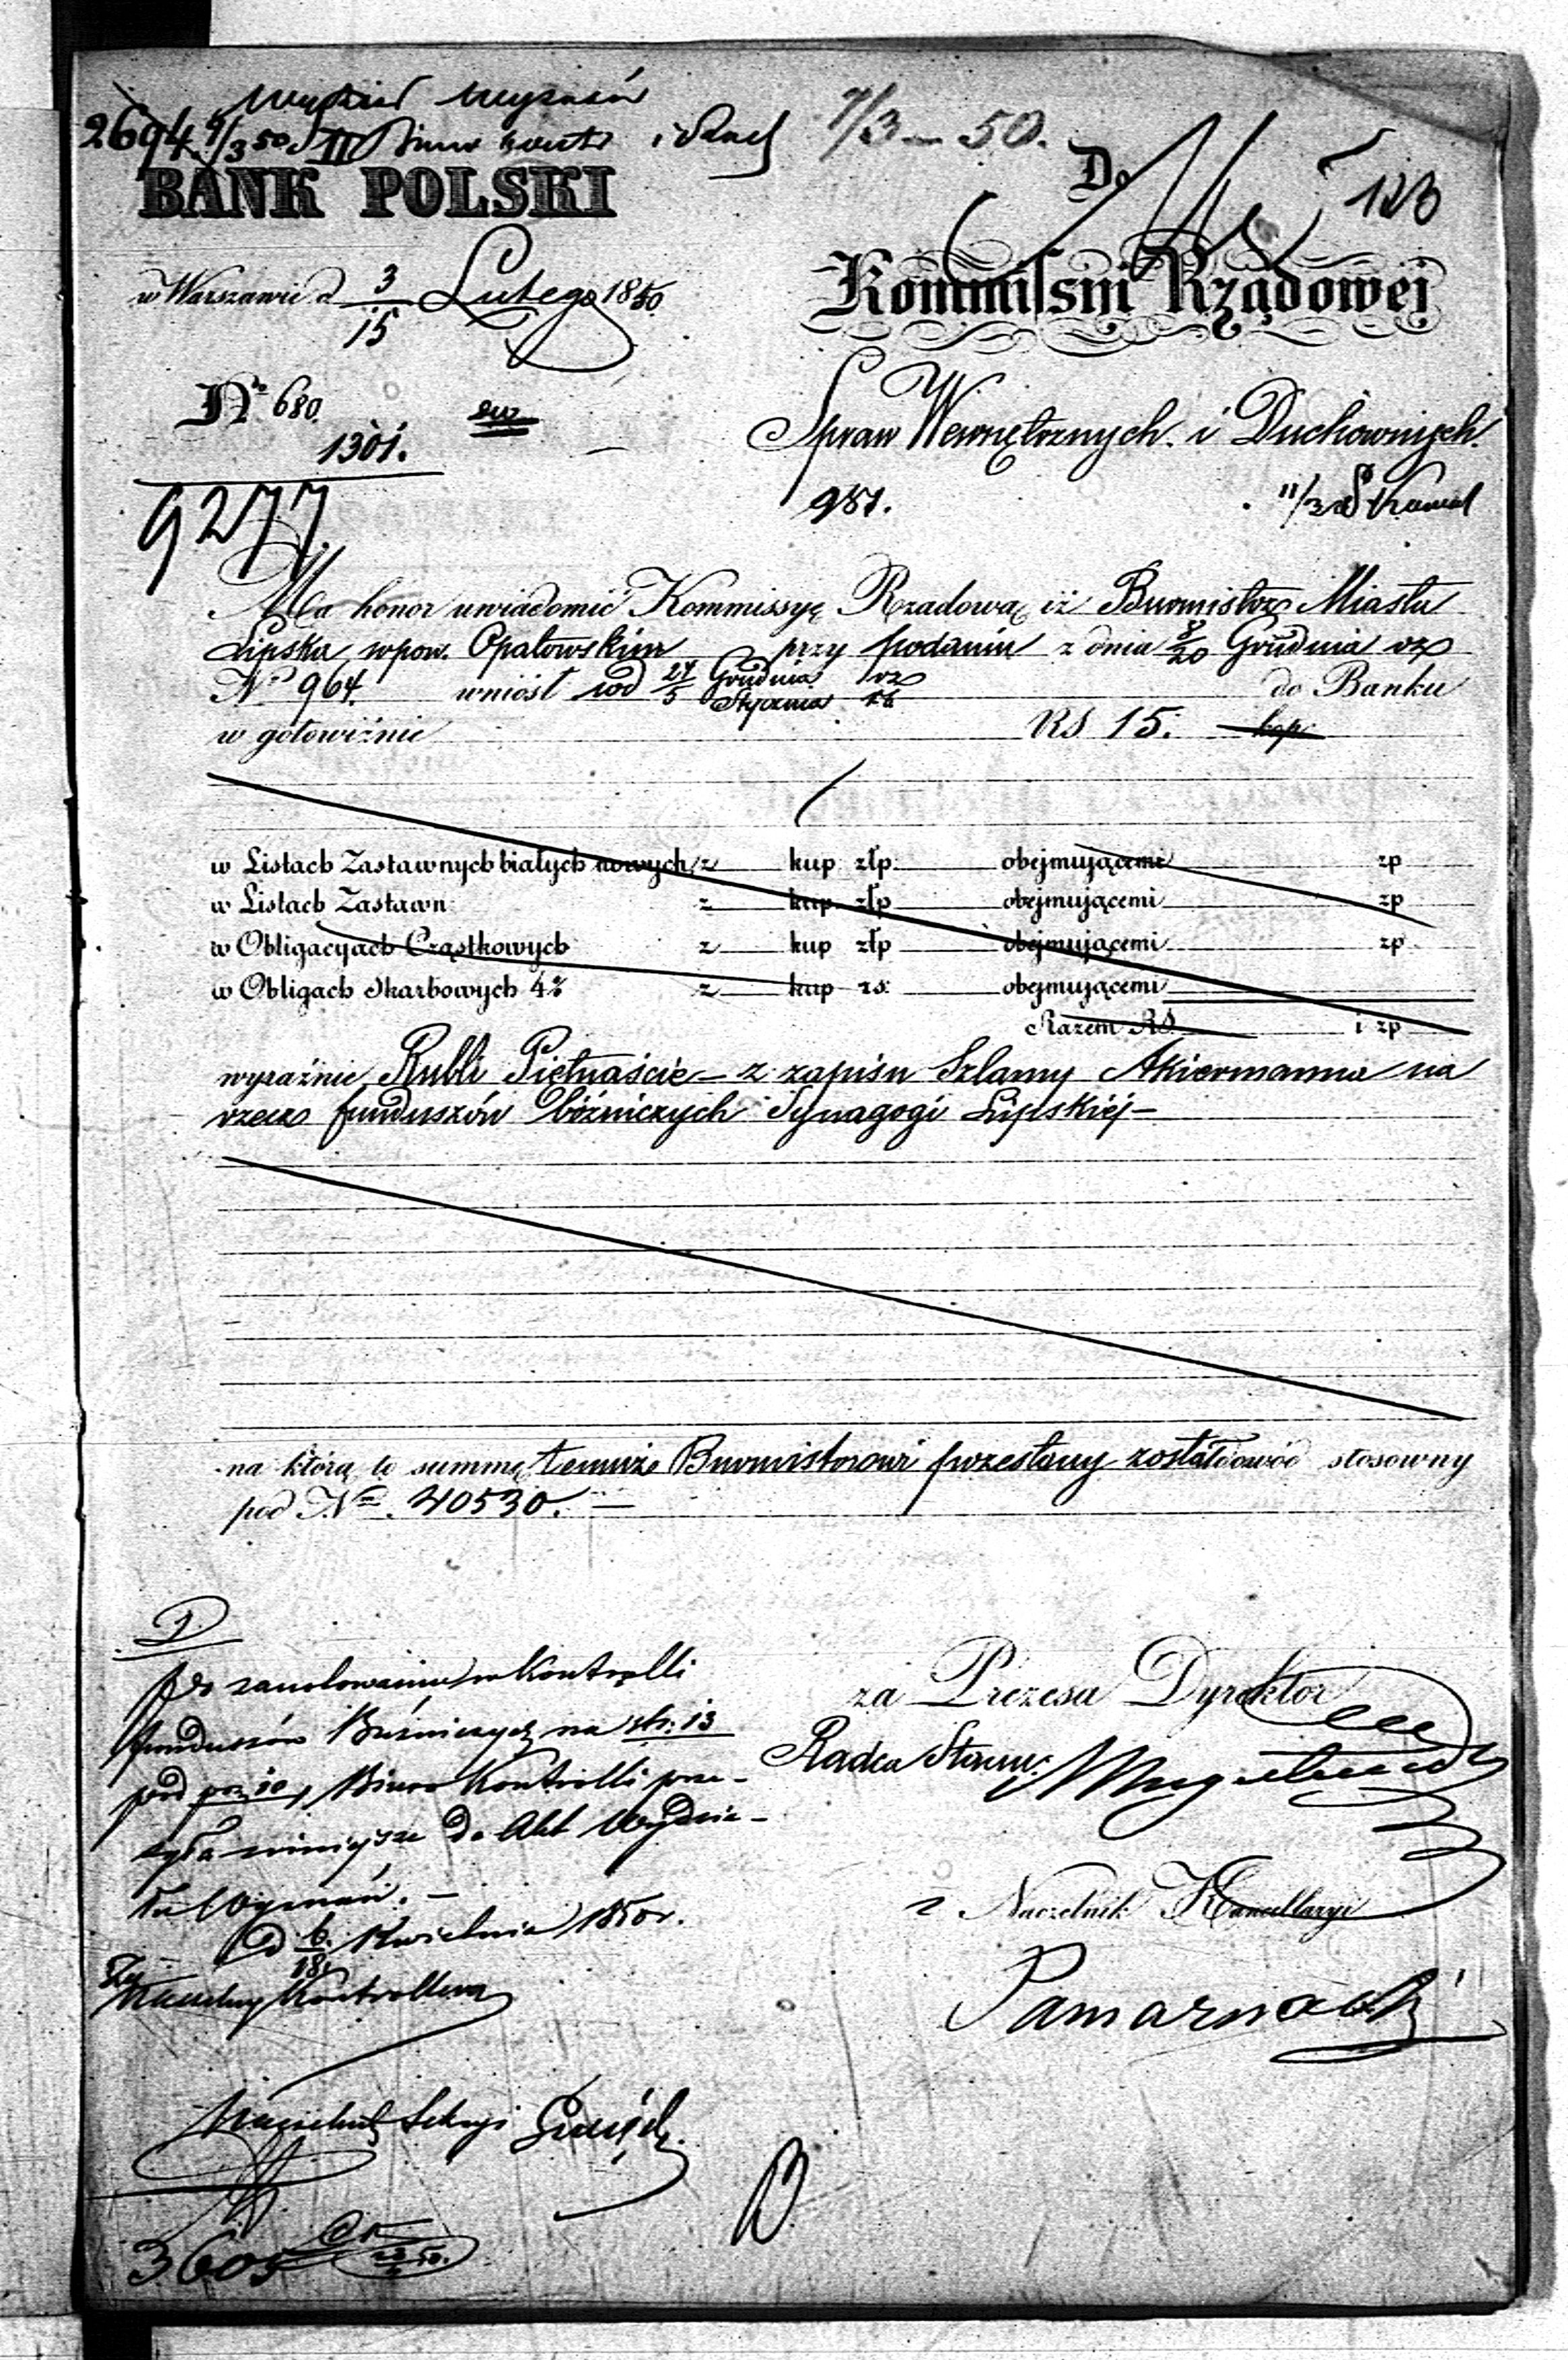 Wydział Wyznań
2694 9/3 50 II Biuro Kontr
7/3 - 50.
BANK POLSKI
Do
123
w Warszawie d 3/15 Lutego 1850.
Kommissyi Rządowej
No 680.
1301.
Spraw Wewnętrznych i Duchownych.
987.
11/3
9277
Ma honor uwiadomić Kommissyę Rządową iż Burmistrz Miasta
Lipska w pow. Opatowskim przy podaniu z dnia 8/20 Grudnia rz
No 964. wniósł pod 24/5 Grudnia/Stycznia rz/rb do Banku
w gotowiźnie RS 15. kop
w Listach Zastawnych białych nowych z kup złp. obejmującemi zp
w Listach Zastawn z kup złp obejmującemi zp
w Obligacyach Cząstkowych z kup złp obejmującemi zp
w Obligach Skarbowych 4% z kup rs. obejmującemi
Razem RS. i zp
wyraźnie Rubli Piętnaście – z zapisu Szlamy Akiermanna na
rzecz funduszów bóźniczych Synagogi Lipskiéj –
na którą to summę temuże Burmistrzowi przesłany został dowód stosowny
pod No 40530. –
Po zanotowaniu w Kontrolli
funduszów Bóźniczych na str: 13
pod poz 10, Biuro Kontrolli prze-
syła niniejsze do Akt Wydzia-
łu Wyznań. –
D 6/18 Kwietnia 1850 r.
Za Naczelny Kontroller
za Prezesa Dyrektor
Radca Stanu
z Naczelnik Kancellaryi
Naczelnik Sekcyi
3605